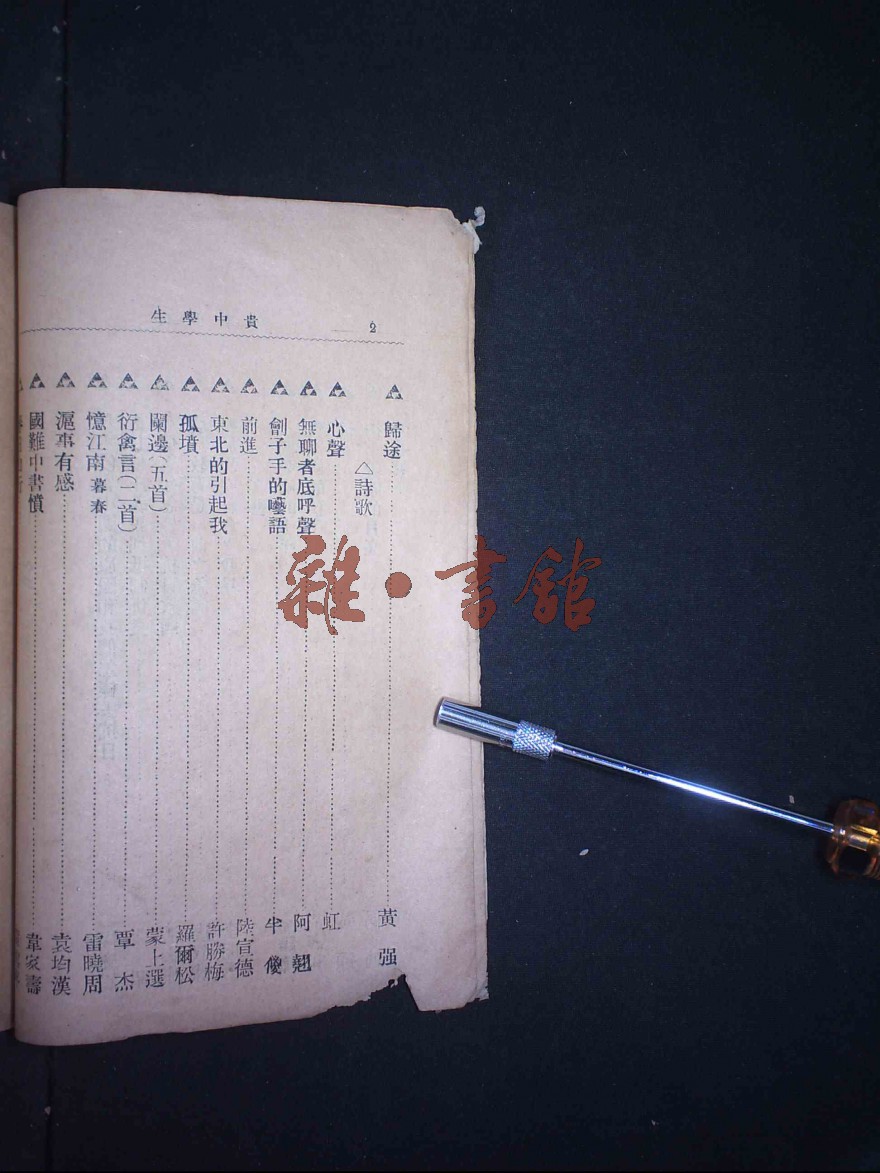 貴中學生 2
歸途 黃强
△詩歌
心聲 虹
無聊者底呼聲 阿翹
劊子手的囈語 半儍
前進 陸宣德
東北的引起我 許勝梅
孤墳 羅爾松
闌邊（五首） 蒙上選
衍禽言（二首） 覃杰
憶江南 暮春 雷曉周
滬事有感 袁均漢
國難中書憤 韋家壽
雜·書館